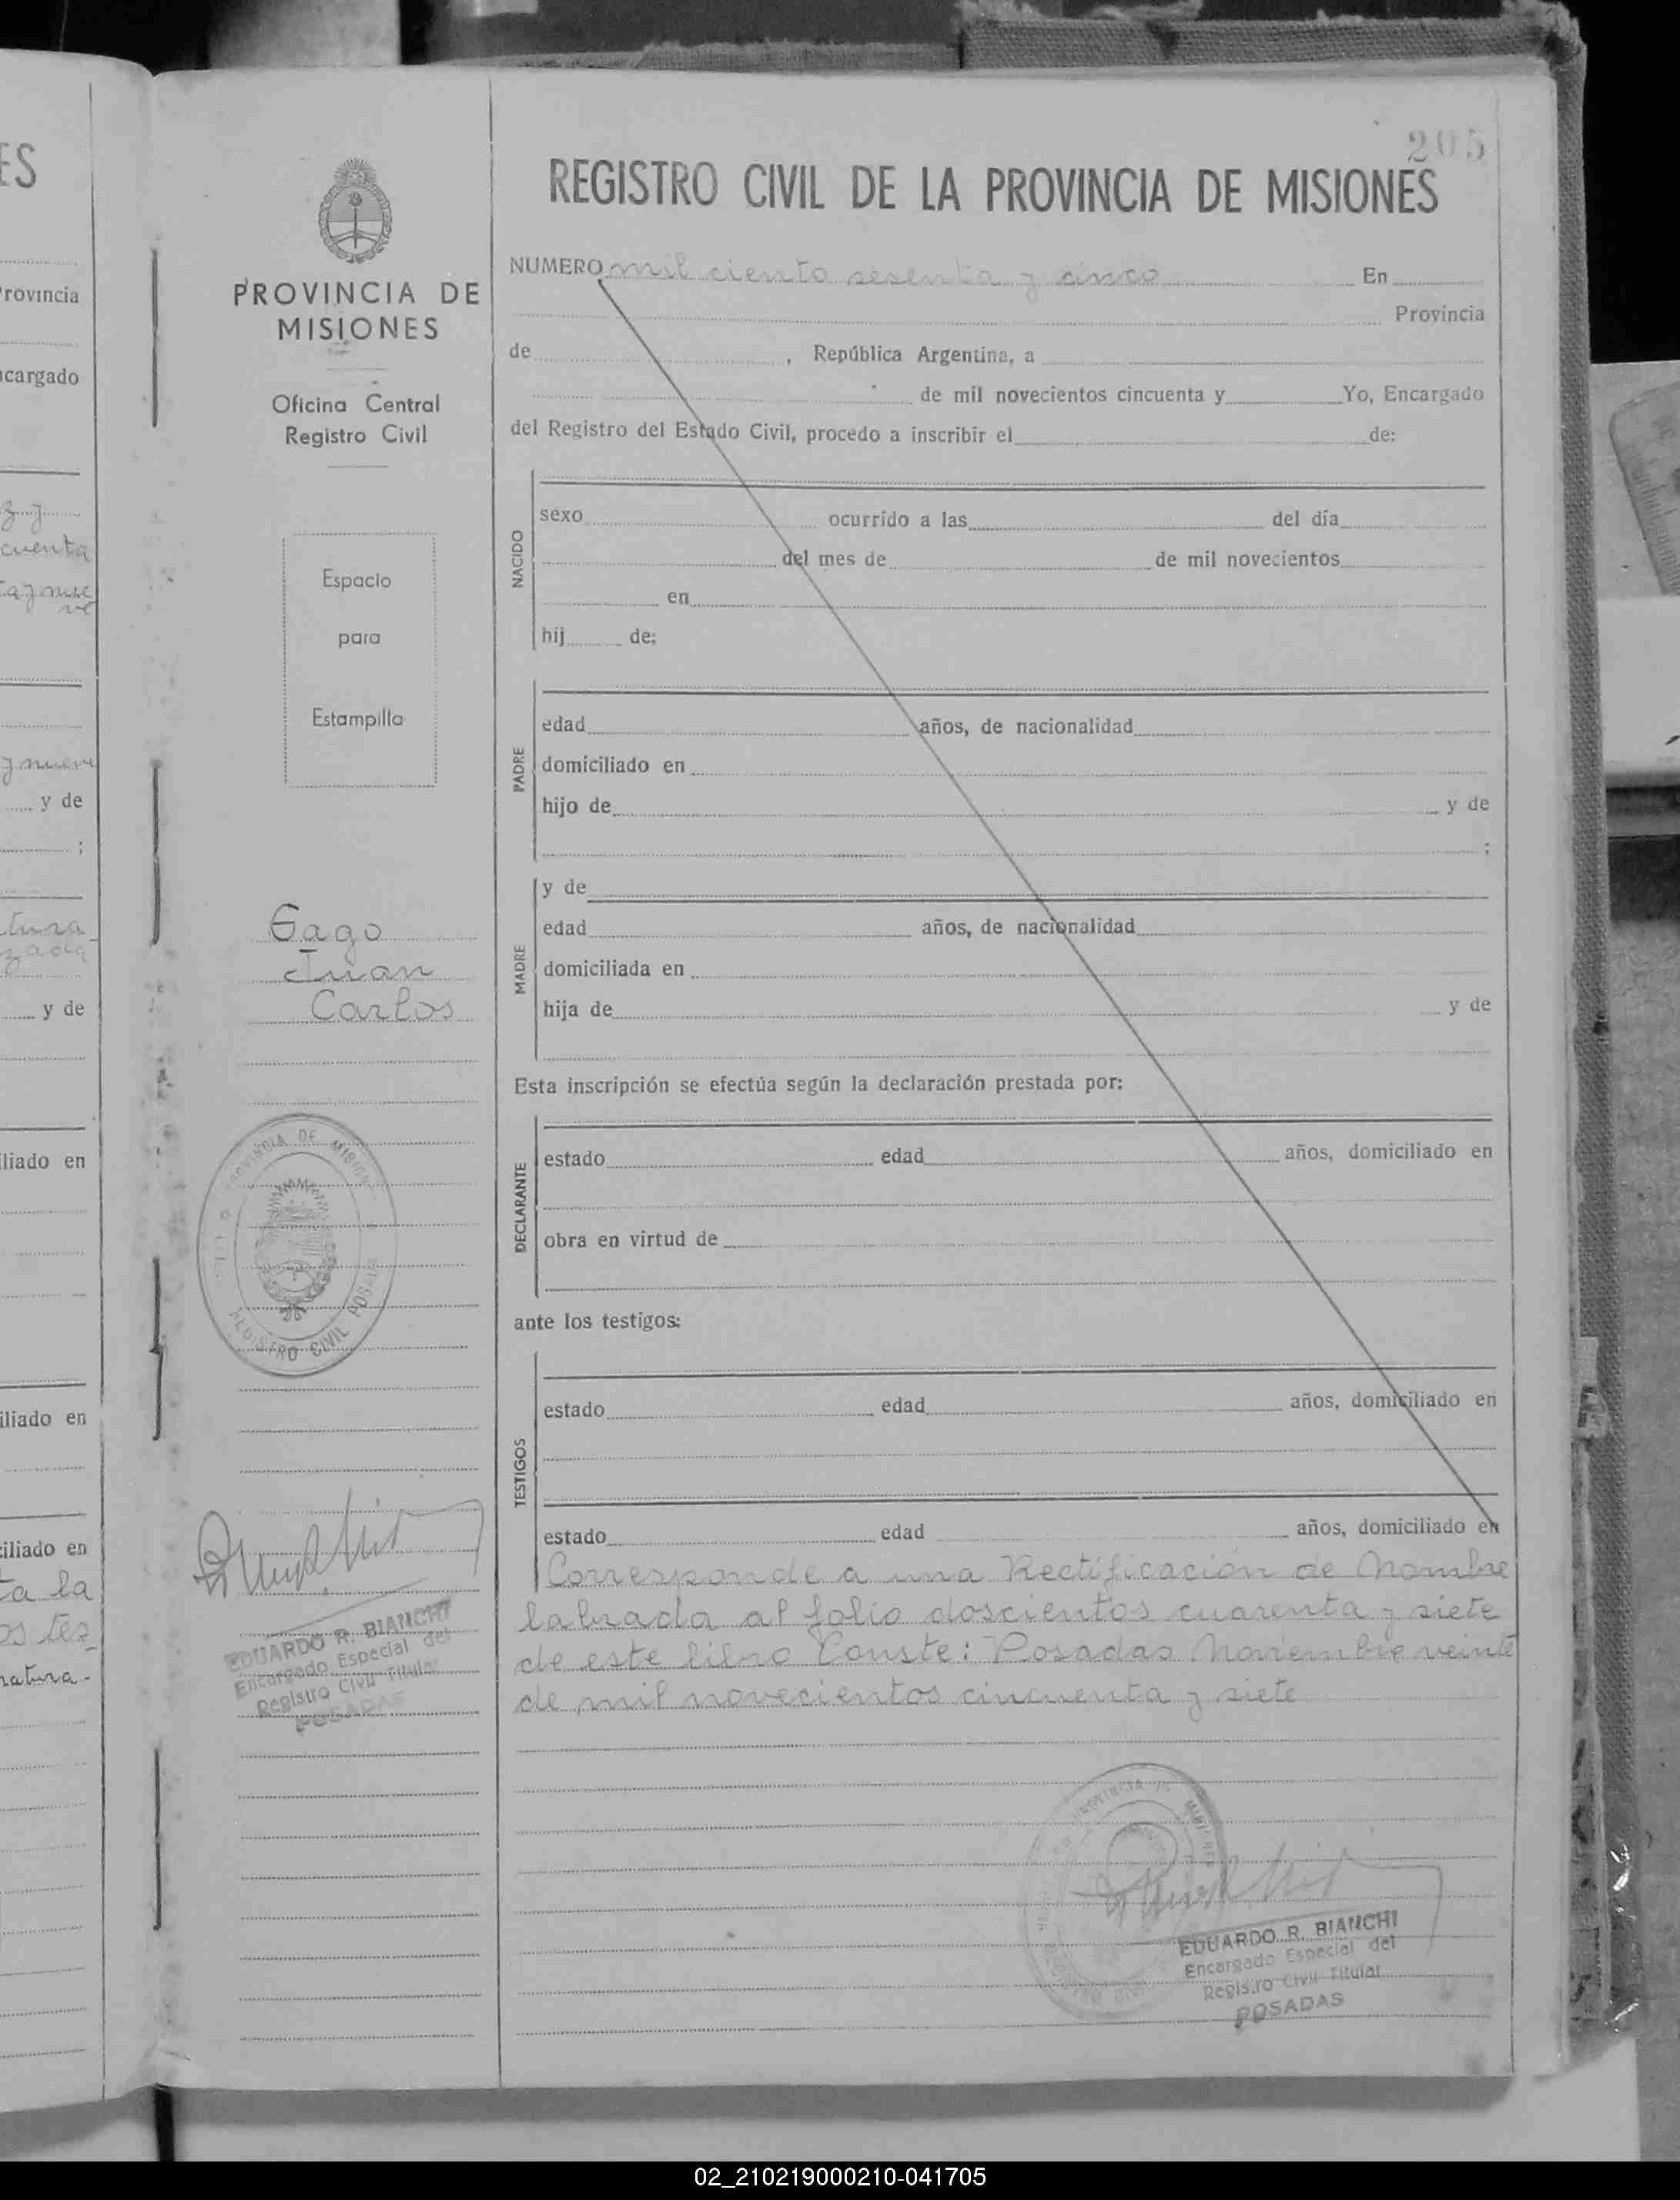 ES
Provincia
ncargado
z y
cuenta
ta y nue
ve
y nueve
y de
;
tura
zada
y de
iliado en
iliado en
ciliado en
ta la
os tes
natura-
PROVINCIA DE
MISIONES
Oficina Central
Registro Civil
Espacio
para
Estampilla
Gago
Juan
Carlos
PROVINCIA DE MISIONES
REGISTRO CIVIL POSADAS
EDUARDO R. BIANCHI
Encargado Especial del
Registro Civil Titular
POSADAS
205
REGISTRO CIVIL DE LA PROVINCIA DE MISIONES
NUMERO mil ciento sesenta y cinco En
Provincia
de , República Argentina, a
de mil novecientos cincuenta y Yo, Encargado
del Registro del Estado Civil, procedo a inscribir el de:
NACIDO
sexo ocurrido a las del día
del mes de de mil novecientos
en
hij de:
PADRE
edad años, de nacionalidad
domiciliado en
hijo de y de
;
MADRE
y de
edad años, de nacionalidad
domiciliada en
hija de y de
Esta inscripción se efectúa según la declaración prestada por:
DECLARANTE
estado edad años, domiciliado en
obra en virtud de
ante los testigos:
TESTIGOS
estado edad años, domiciliado en
estado edad años, domiciliado en
Corresponde a una Rectificación de Nombre
labrada al folio doscientos cuarenta y siete
de este libro Conste: Posadas Noviembre veinte
de mil novecientos cincuenta y siete
PROVINCIA DE MISIONES
EDUARDO R. BIANCHI
Encargado Especial del
Registro Civil Titular
POSADAS
02_210219000210-041705